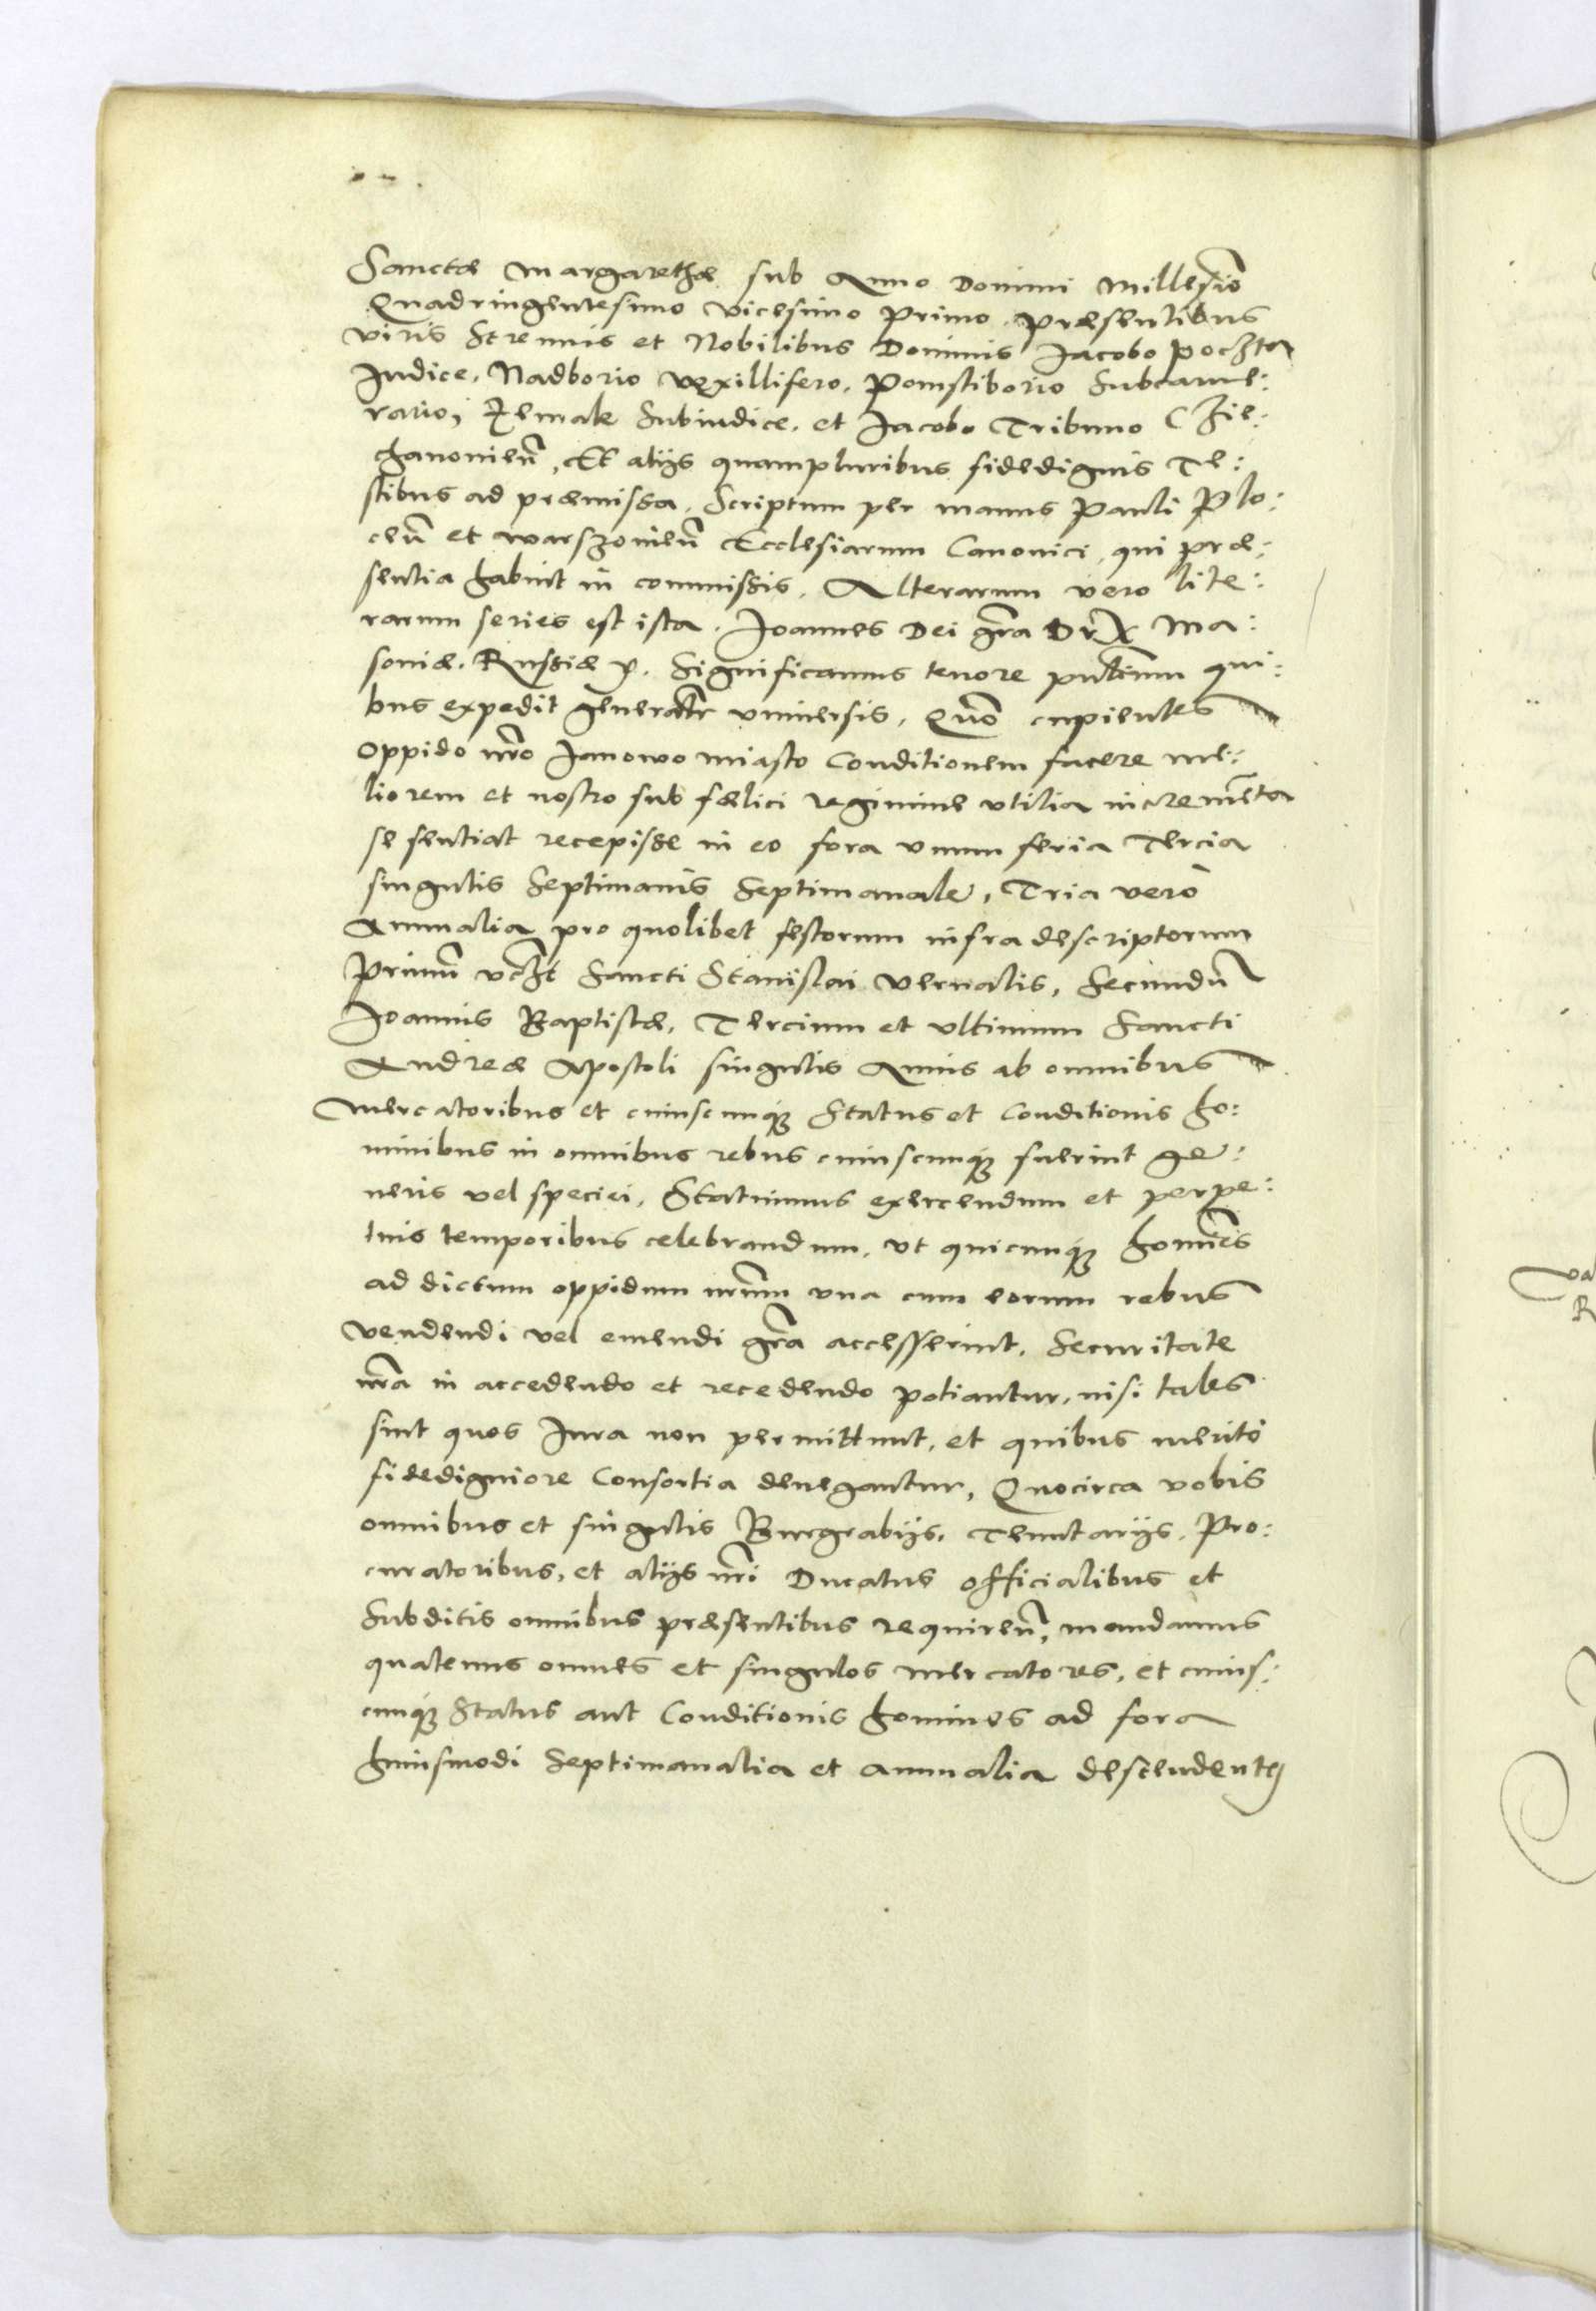 Sanctæ Margarethæ sub Anno Domini Millesio
Quadringentesimo vicesimo Primo. Præsentibus
viris Strenuis et Nobilibus Dominis Iacobo Pochta
Iudice, Nadborio vexillifero, Pomstiborio Subcame:
rario, Zemak Subiudice, et Iacobo Tribuno Czie:
chanonien, Et alijs quampluribus fidedignis Te:
stibus ad præmissa. Scriptum per manus Pauli Plo:
cen et warszouien Ecclesiarum Canonici, qui præ:
sentia habuit in commissis. Alterarum vero lite:
rarum series est ista. Ioannes Dei gra Dux Ma:
soniæ, Russiæ &. Significamus tenore pntium qui:
bus expedit generatr vniuersis, Quo cupientes
oppido nro Ianowo miasto Conditionem facere me:
liorem et nostro sub fælici regimine vtilia incrementa
se sentiat recepisse in eo fora vnum feria Tercia
singulis Septimanis Septimanale, Tria vero
Annualia pro quolibet festorum infra descriptorum
Primu vczt Sancti Stanislai vernalis, Secundu
Ioannis Baptistæ, Tercium et vltimum Sancti
Andreæ Apostoli singulis Annis ab omnibus
Mercatoribus et cuiuscunq; Status et Conditionis ho:
minibus in omnibus rebus cuiuscunq; fuerint ge:
neris vel speciei, Statuimus exercendum et perpe:
tuis temporibus celebrandum, vt quicunq; homies
ad dictum oppidum nrum vna cum eorum rebus
vendendi vel emendi gra accesserint, Securitate
nra in accedendo et recedendo potiantur, nisi tales
sint quos Iura non permittunt, et quibus merito
fidedigniore Consortia denegantur, Quocirca vobis
omnibus et singulis Burgrabijs, Tenutarijs, Pro:
curatoribus, et alijs nri Ducatus officialibus et
Subditis omnibus præsentibus requiren, mandamus
quatenus omnes et singulos mercatores, et cuius:
cunq; Status aut Conditionis homines ad fora
huiusmodi Septimanalia et annualia descendentes